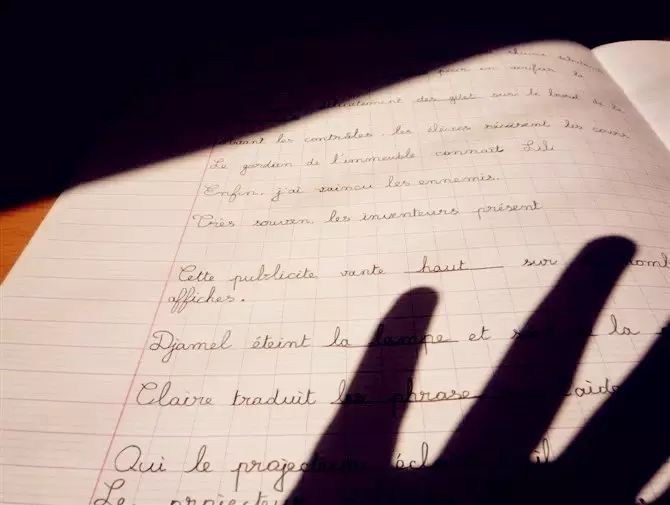 pour en verifier la
délicatement des gilet sur le bord de la
avant les contrôles, les élèves révisent les cours
Le gardien de l'immeuble connaît Lili
Enfin, j'ai vaincu les ennemis.
Très souven, les inventeurs présent
Cette publicité vante haut sur
affiches.
Djamel éteint la lampe et la
Claire traduit les phrase
Qui le projecteur
Le projecteur